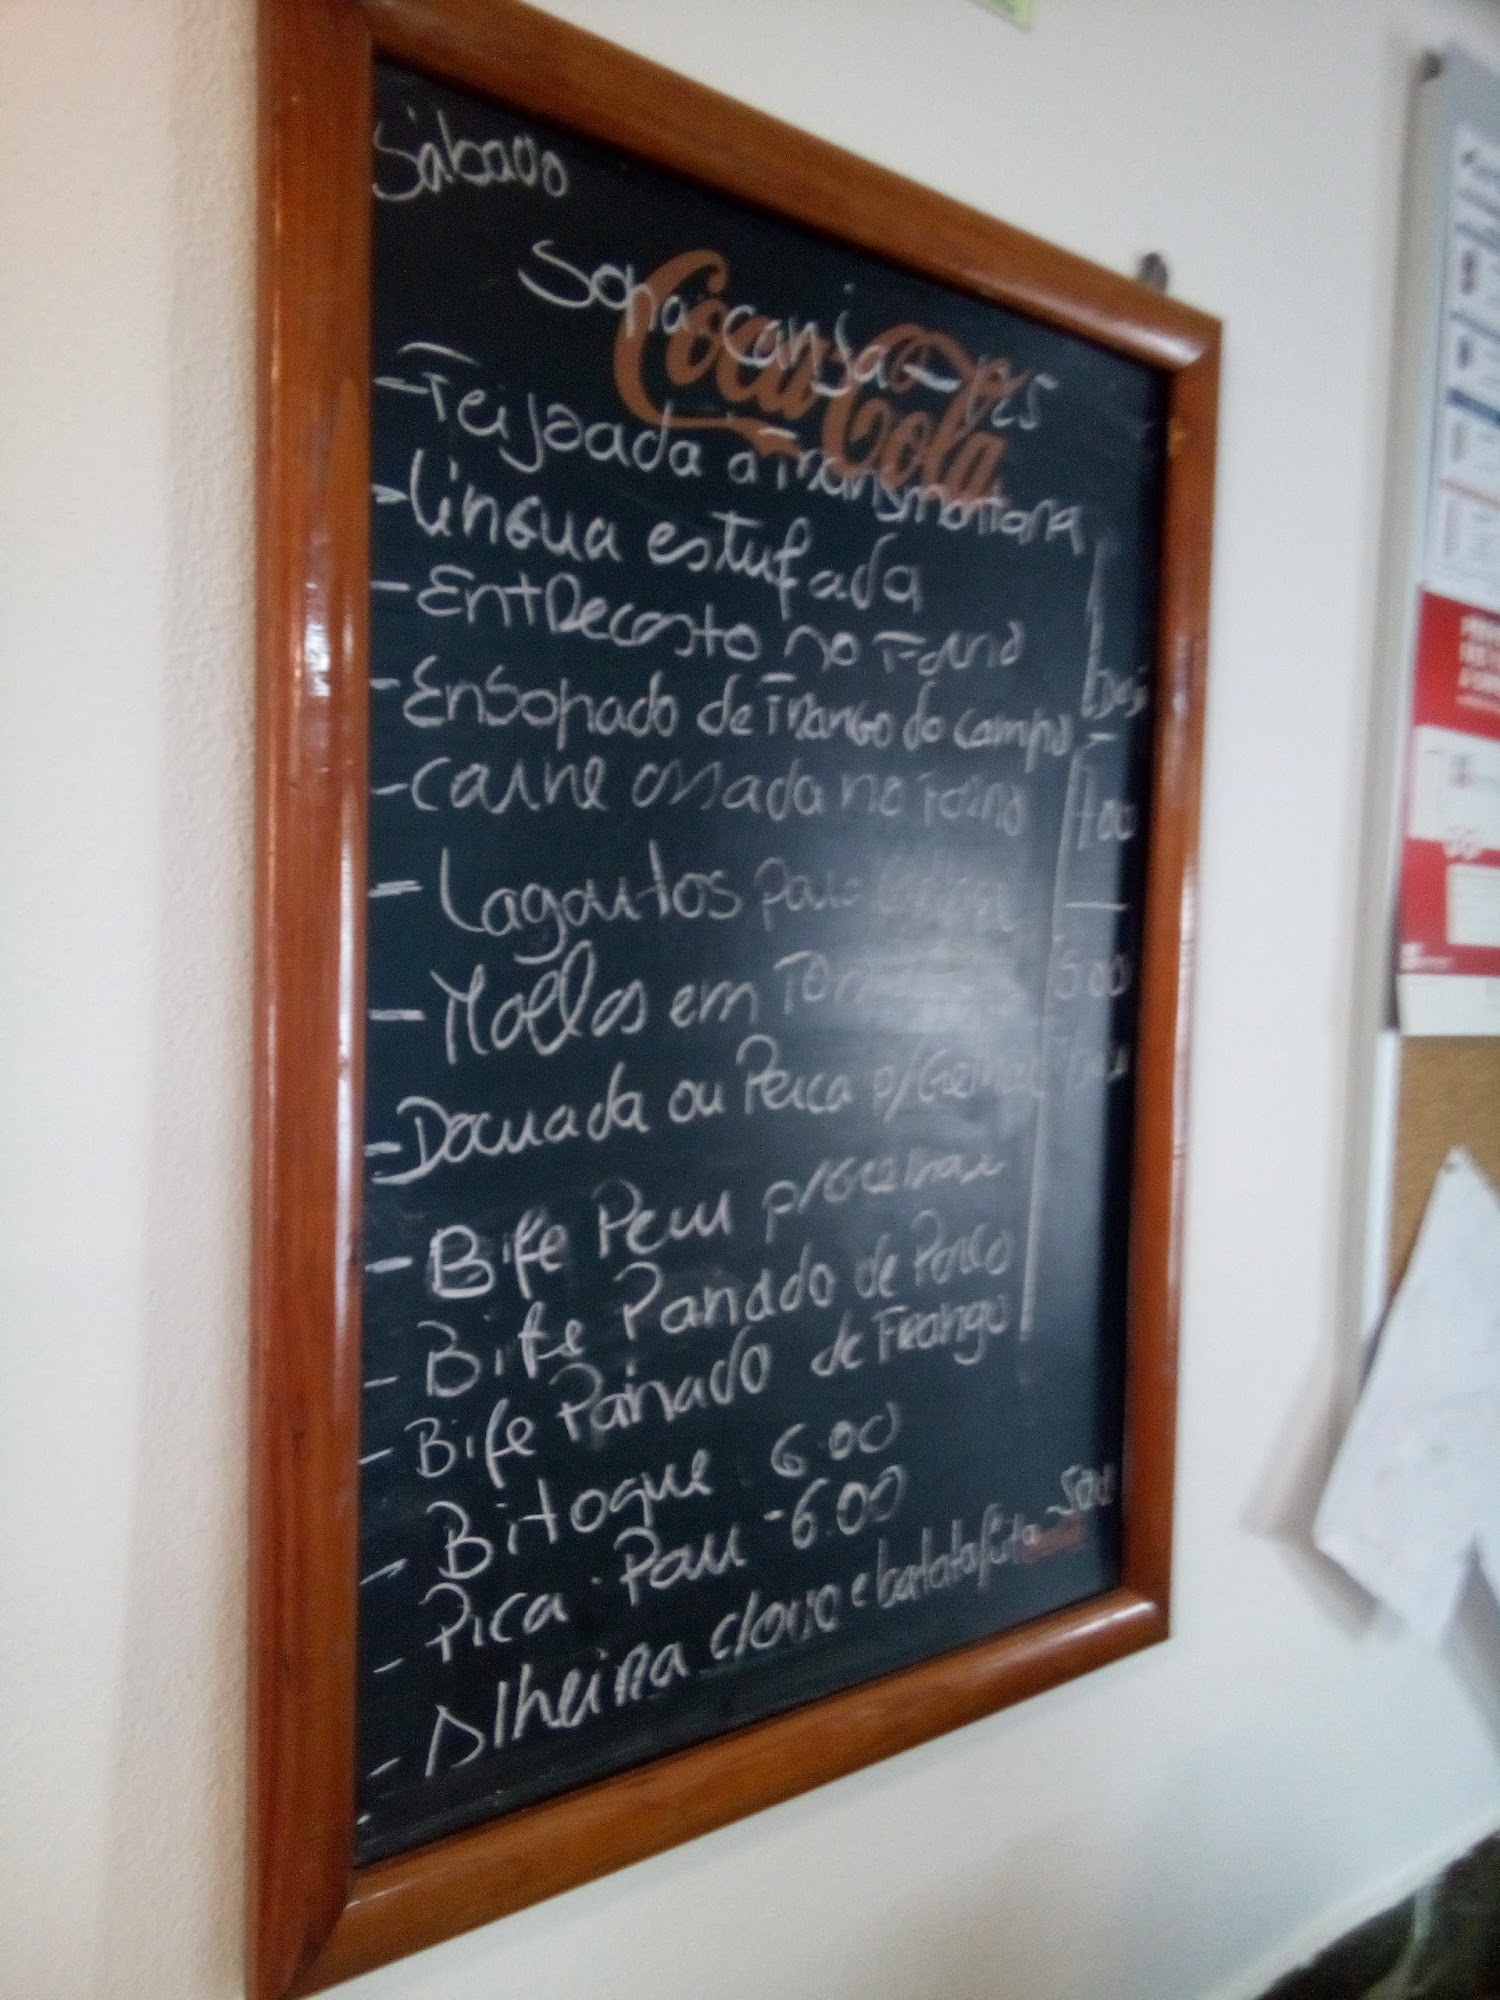 Sábado
Coca-Cola
Sopa canja - 1.25
- Feijoada à Transmontana
- Língua estufada
- Entrecosto no Forno
- Ensopado de Frango do campo
- Carne assada no Forno
- Lagartos para
- Moelas em
- Dourada ou Perca p/Grelhar
- Bife Peru p/Grelhar
- Bife Panado de Porco
- Bife Panado de Frango
- Bitoque 6.00
- Pica-Pau - 6.00
- Alheira c/ovo e batata frita